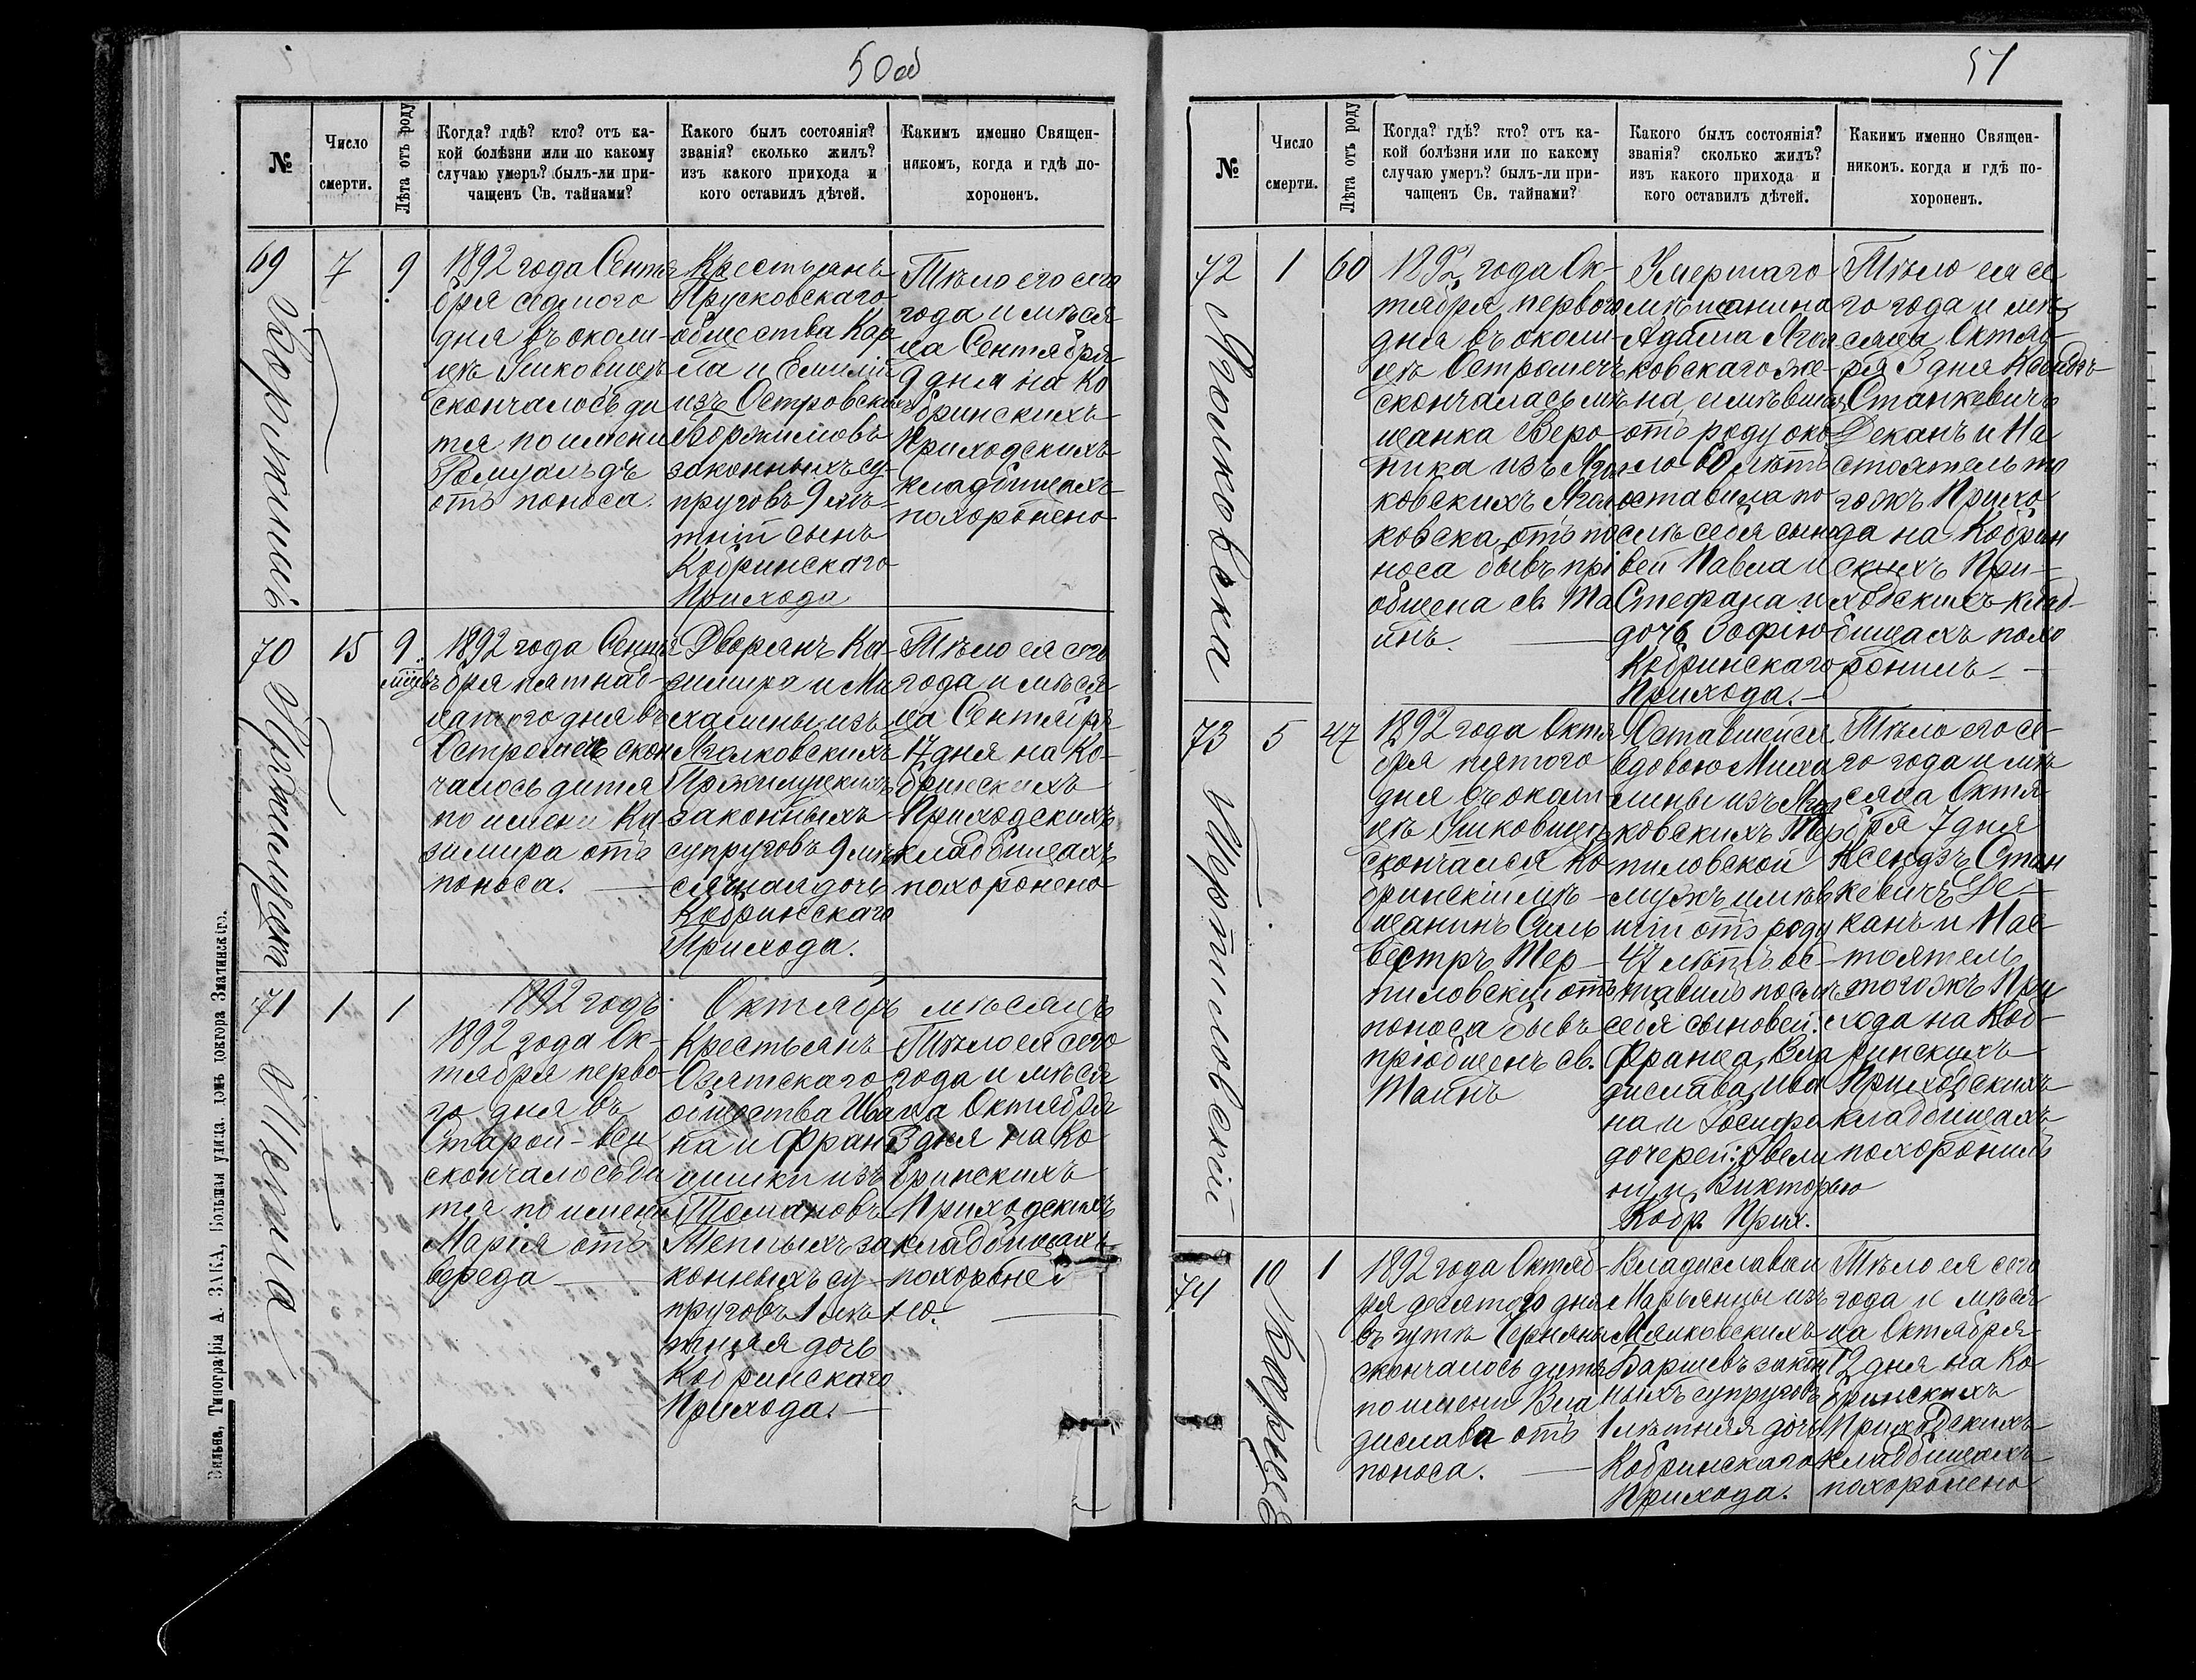 50 об
№
Число
смерти.
Лѣта отъ роду
Когда? гдѣ? кто? отъ ка-
кой болѣзни или по какому
случаю умеръ? былъ-ли при-
чащенъ Св. тайнами?
Какого былъ состоянія?
званія? сколько жилъ?
изъ какого прихода и
кого оставилъ дѣтей.
Какимъ именно Священ-
никомъ, когда и гдѣ по-
хороненъ.
69
7
9
1892 года Сентя
бря седмого
дня въ околи-
цѣ
скончалось ди
тя по имени
Ромуальдъ
отъ поноса.
Крестьянъ
Прусковскаго
общества Кар
ла и Емиліи
изъ Островскихъ
законныхъ су-
пруговъ 9 лѣ-
тній сынъ
Кобринскаго
Прихода
Тѣло его сего
года и мѣся
ца Сентября
9 дня на Ко
бринскихъ
Приходскихъ
кладбищахъ
похоронено
70
15
9.
мѣсцъ
1892 года Сентя
бря пятнад-
цатого дня въ
Остромеч скон
чалось дитя
по имени Ка-
зимира отъ
поноса.
Дворянъ Ка-
зимира и Ми
халины изъ
Ягелковскихъ
законныхъ
супруговъ 9 мѣ
сячная дочь
Кобринскаго
Прихода.
Тѣло ея сего
года и мѣся
ца Сентября
17 дня на Ко-
бринскихъ
Приходскихъ
кладбищахъ
похоронено
71
1
1
1892 годъ Октябрь мѣсяцъ
1892 года Ок-
тября перво-
го дня въ
Старой-вси
скончалось ди
тя по имени
Марія отъ
вереда
Крестьянъ
Озятскаго
общества Ива
на и Фран
цишки изъ
Томановъ
законныхъ су
пруговъ 1 лѣ
тняя дочь
Кобринскаго
Прихода.
Тѣло ея сего
года и мѣся
ца Октября
3 дня на Ко
бринскихъ
Приходскихъ
кладбищахъ
похороне
но.
Вильна, Типографія А. ЗАКА, Большая улица, домъ доктора Зматинскаго.
51
№
Число
смерти.
Лѣта отъ роду
Когда? гдѣ? кто? отъ ка-
кой болѣзни или по какому
случаю умеръ? былъ-ли при-
чащенъ Св. тайнами?
Какого былъ состоянія?
званія? сколько жилъ?
изъ какого прихода и
кого оставилъ дѣтей.
Какимъ именно Священ-
никомъ, когда и гдѣ по-
хороненъ.
72
1
60
1892 года Ок-
тября первого
дня въ околи-
цѣ Остромечъ
скончалась мѣ
щанка Веро-
ника изъ
отъ по
носа бывъ прі
общена св. Та
инъ.
Умершаго
мѣщанина
Адама
же-
на, имѣвшая
отъ роду око
ло 60 лѣтъ
оставила по
слѣ себя сыно
вей Павла и
Стефана и
дочь Зофію
Кобринскаго
Прихода.
Тѣло ея се
го года и мѣ
сяца Октяб-
ря 3 дня Ксендзъ
Станкевичъ
Деканъ и На
стоятель то
гожъ Прихо
да на Кобрин
скихъ При-
ходскихъ клад-
бищахъ похо
ронилъ
73
5
47
Терпиловскій
1892 года Октя
бря пятого
дня въ околи
цѣ
скончался Ко-
бринскій мѣ-
щанинъ Силь
вестръ Тер-
пиловскій отъ
поноса бывъ
пріобщенъ св.
Таинъ
Оставшейся
вдовою Миха
лины изъ
Тер
пиловской
мужъ имѣв
шій отъ роду
47 лѣтъ ос-
тавилъ послѣ
себя сыновей:
Франца, Вла
дислава, Ива
на и Іосифа
дочерей: Эвели
ну и Викторію
Кобр. Прих.
Тѣло его се-
го года и мѣ
сяца Октя-
бря 7 дня
Ксендзъ Стан
кевичъ Де-
канъ и Нас-
тоятель
тогожъ При
хода на Коб-
ринскихъ
Приходскихъ
кладбищахъ
похоронилъ
74
10
1
1892 года Октяб-
ря десятого дня
въ
скончалось дитя
по имени Вла
дислава отъ
поноса.
Владислава и
Марьянны изъ
закон
ныхъ супруговъ
1 лѣтняя дочь
Кобринскаго
Прихода.
Тѣло ея сего
года и мѣся
ца Октября
12 дня на Ко
бринскихъ
Приходскихъ
кладбищахъ
похоронено